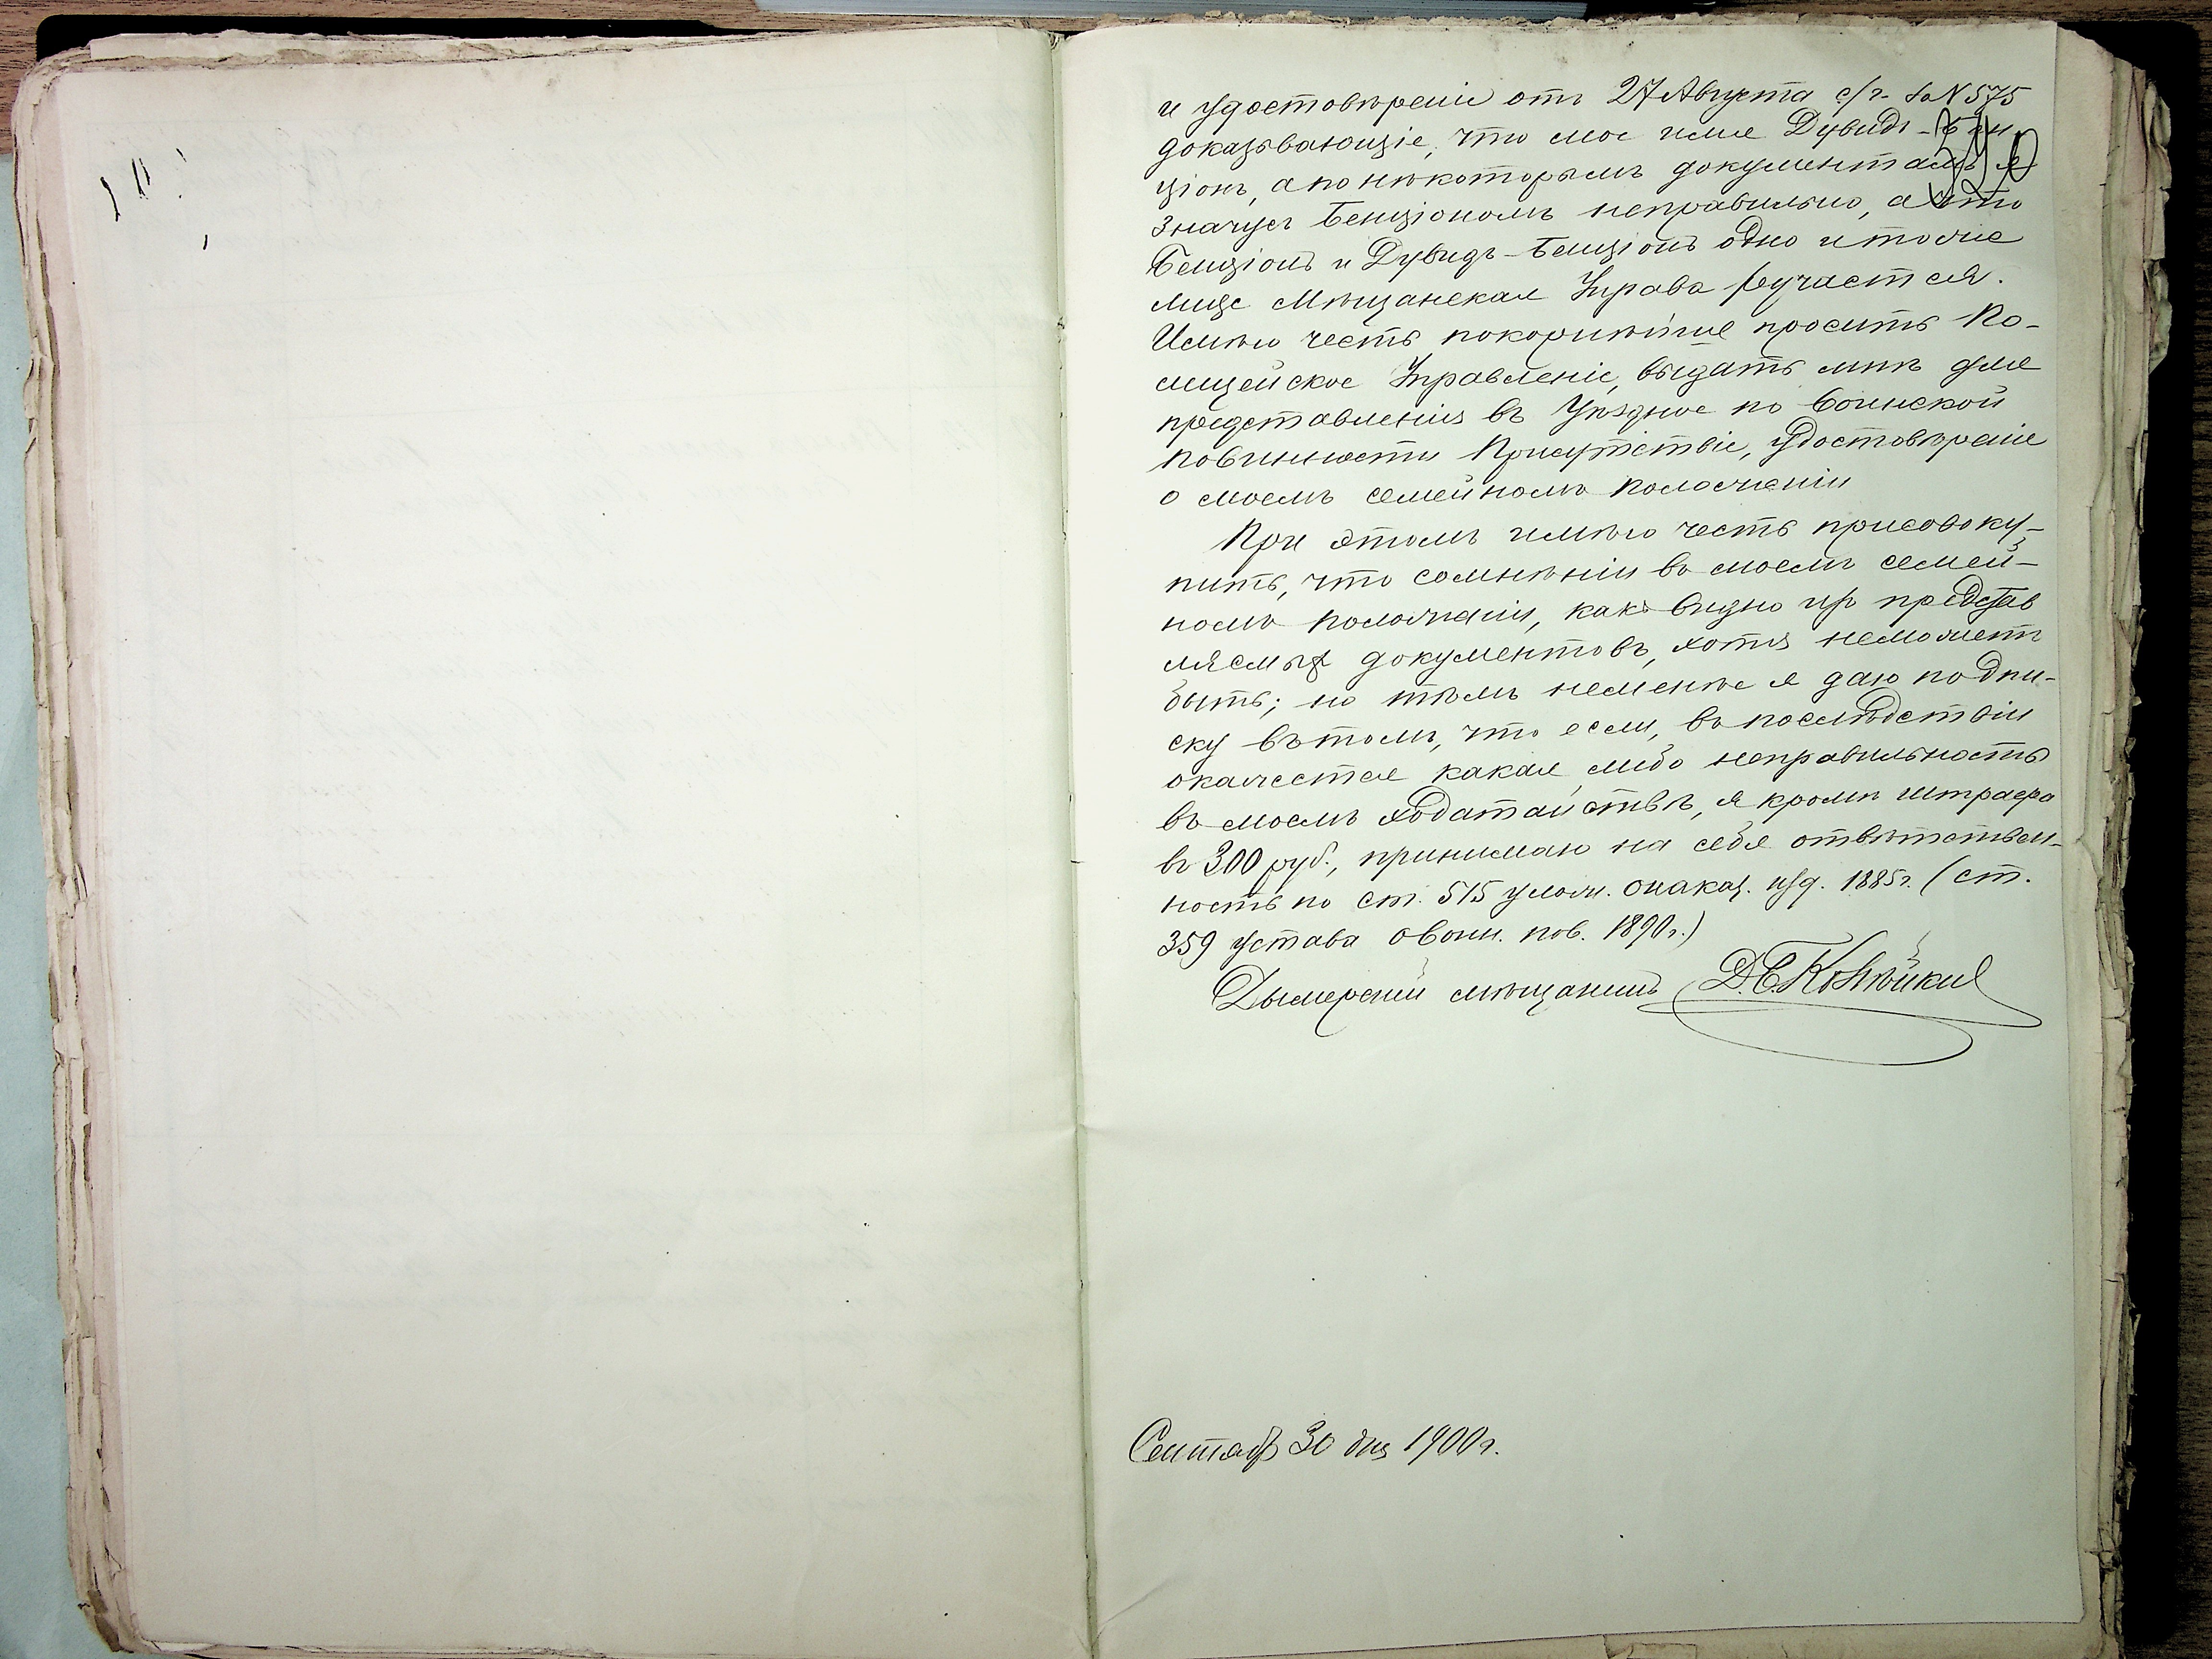 и удостовѣреніе отъ 27 Августа с/г. за N 575
доказывающіе, что мое имя Дувидъ-Бен
ціонъ, а по нѣкоторымъ документамъ я
значусь Бенціономъ неправильно, а что
Бенціонъ и Дувидъ-Бенціонъ одно и тоже
лице Мѣщанская Управа ручается.
Имѣю честь покорнѣйше просить По-
лицейское Управленіе, выдать мнѣ для
представленія въ Уѣздное по воинской
повинности Присутствіе, удостовѣреніе
о моемъ семейномъ положеніи
При этомъ имѣю честь присовоку-
пить, что сомнѣніи въ моемъ семей-
номъ положеніи, какъ видно изъ представ
ляемыхъ документовъ, хотя неможетъ
быть; но тѣмъ неменѣе я даю подпи-
ску въ томъ, что если, въ послѣдствіи
окажется какая либо неправильность
въ моемъ ходатайствѣ, я кромѣ штрафа
въ 300 руб., принимаю на себя отвѣтствен-
ность по ст. 515 улож. о наказ. изд. 1885г. (ст.
359 устава о воин. пов. 1890г.)
Дымерскій мѣщанинъ Д. Б.
Сентяб 30 дня 1900г.